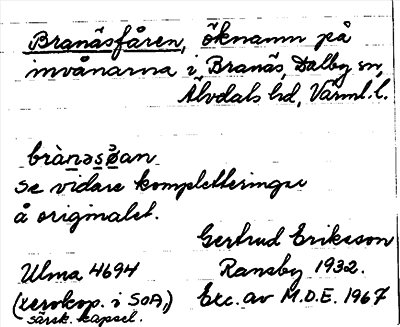 Branäsfåren, öknamn på
invånarna i Branäs, Dalby sn,
Älvdals hd, Värml. l.
brànəsɷ̄an
se vidare kompletteringar
å originalet.
Gertrud Eriksson
Ulma 4694 Ransby 1932.
(xerokop. i SOA,) Exc. av M.D.E. 1967
särsk. kapsel.